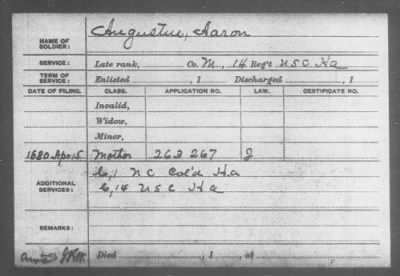 NAME OF SOLDIER: Augustus, Aaron
SERVICE: Late rank, Co. M, 14 Reg't U S C H a
TERM OF SERVICE: Enlisted , 1 Discharged , 1
DATE OF FILING. CLASS. APPLICATION NO. LAW. CERTIFICATE NO.
Invalid,
Widow,
Minor,
1880 Apr 15 Mother 263 267 J
ADDITIONAL SERVICES: C, 1 N C Col'd H a
C, 14 U S C H a
REMARKS:
Died , 1 , at